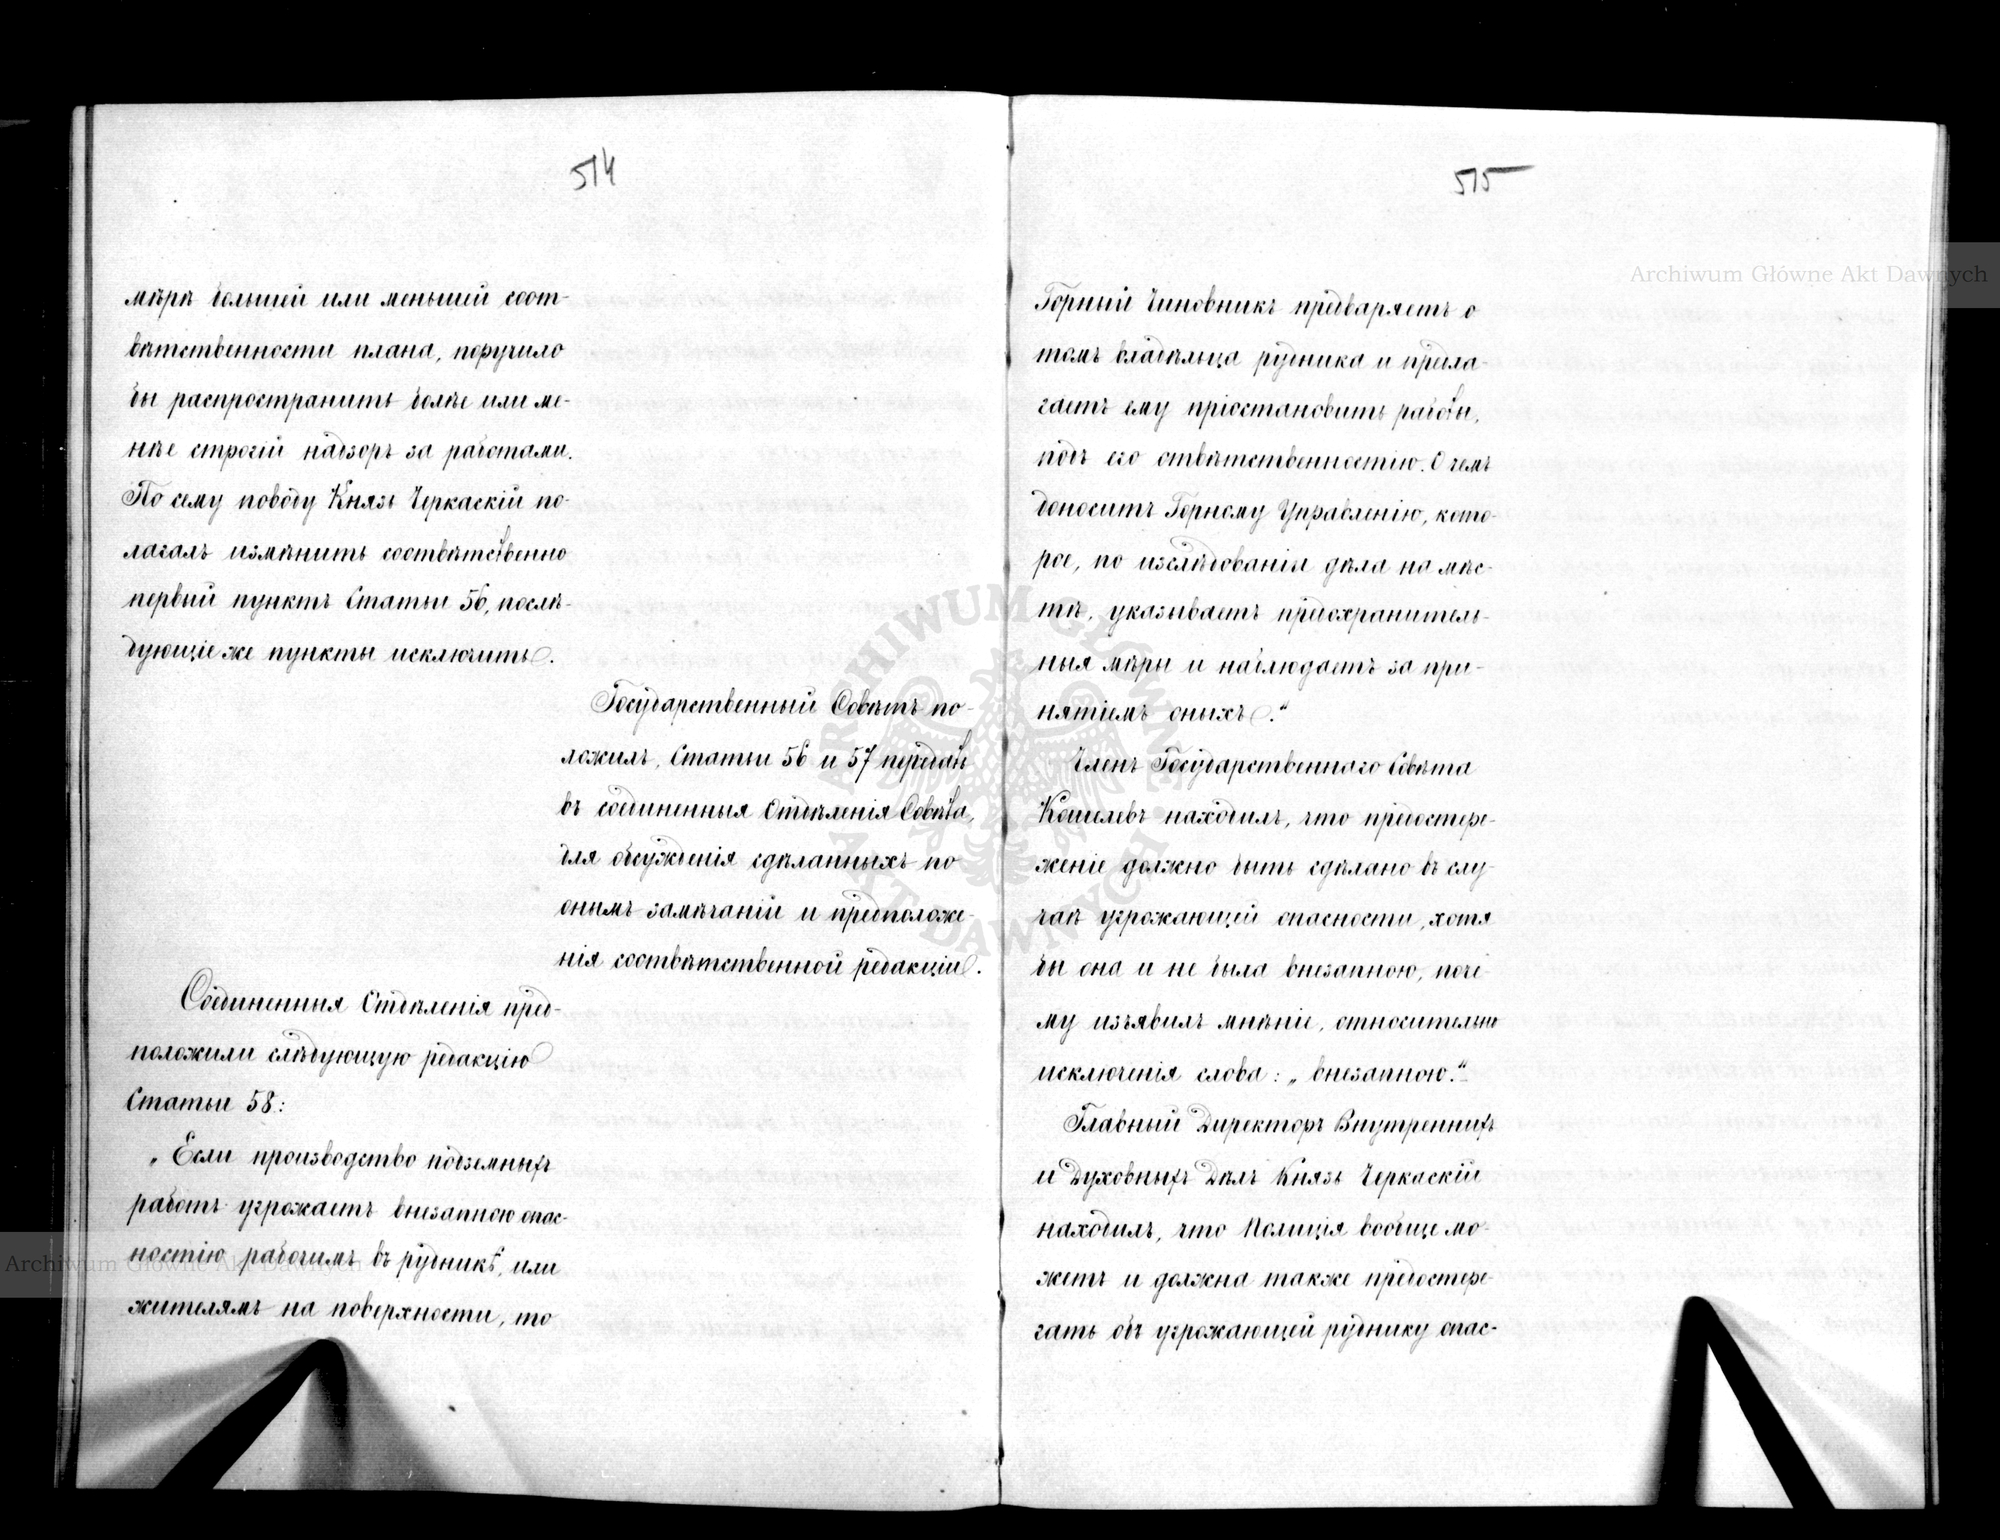 514
мѣрѣ большей или меньшей соот-
вѣтственности плана, поручило
бы распространить болѣе или ме-
нѣе строгій надзоръ за работами.
По сему поводу Князь Черкаскій по-
лагалъ измѣнить соотвѣтственно
первый пунктъ Статьи 56, послѣ-
дующіе же пункты исключить.
Государственный Совѣтъ по-
ложилъ, Статьи 56 и 57 передать
въ соединенныя Отдѣленія Совѣта,
для обсужденія сдѣланныхъ по
онымъ замѣчаній и предположе-
нія соотвѣтственной редакціи.
Соединенныя Отдѣленія пред-
положили слѣдующую редакцію
Статьи 58:
„Если производство подземныхъ
работъ угрожаетъ внезапною опас-
ностію рабочимъ въ рудникѣ, или
жителямъ на поверхности, то
515
Горный Чиновникъ предваряетъ о
томъ владѣльца рудника и предла-
гаетъ ему пріостановить работы,
подъ его отвѣтственностію. О чемъ
доноситъ Горному Управленію, кото-
рое, по изслѣдованіи дѣла на мѣс-
тѣ, указываетъ предохранитель-
ныя мѣры и наблюдаетъ за при-
нятіемъ оныхъ.“
Членъ Государственнаго Совѣта
Кошелевъ находилъ, что предостере-
женіе должно быть сдѣлано въ слу-
чаѣ угрожающей опасности, хотя
бы она и не была внезапною, поче-
му изъявилъ мнѣніе, относительно
исключенія слова: „внезапною.“
Главный Директоръ Внутреннихъ
и Духовныхъ Дѣлъ Князь Черкаскій
находилъ, что Полиція вообще мо-
жетъ и должна также предостере-
гать объ угрожающей руднику опас-
Archiwum Główne Akt Dawnych
Archiwum Główne Akt Dawnych
ARCHIWUM GŁÓWNE AKT DAWNYCH